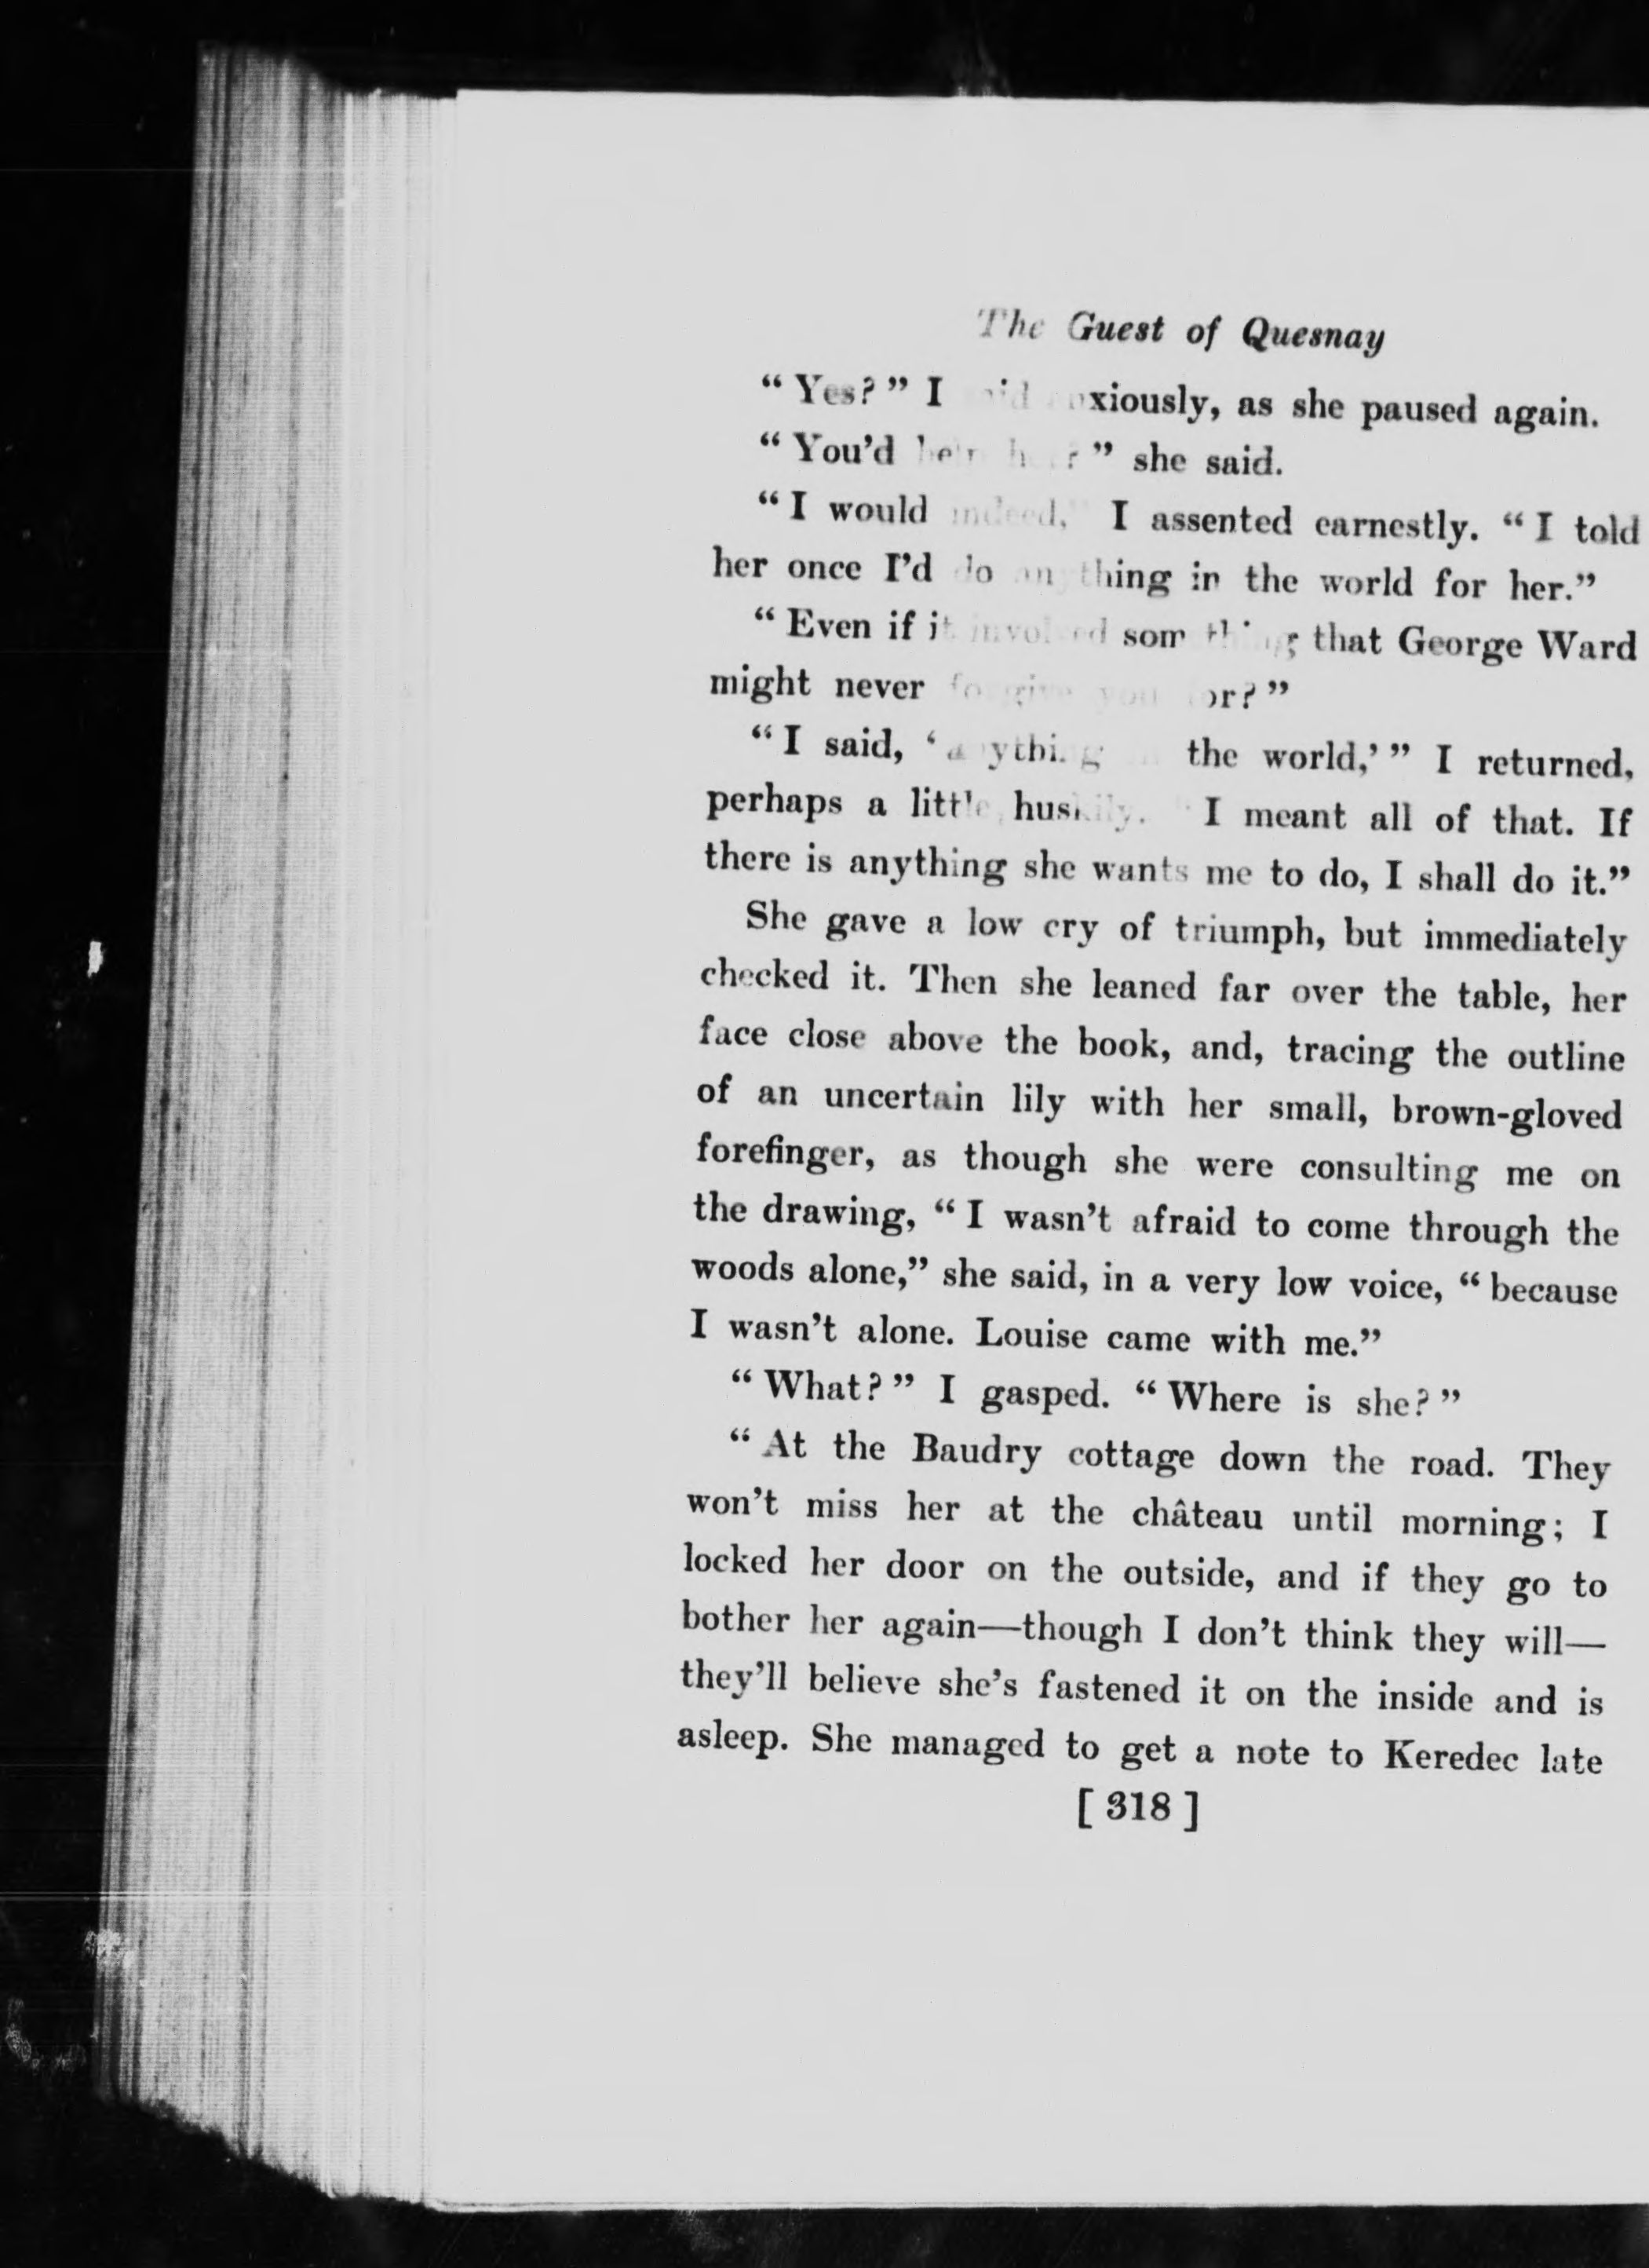 The Guest of Quesnay
“Yes?” I said anxiously, as she paused again.
“You’d help her?” she said.
“I would indeed,” I assented earnestly. “I told
her once I’d do anything in the world for her.”
“Even if it involved something that George Ward
might never forgive you for?”
“I said, ‘anything in the world,’” I returned,
perhaps a little huskily. “I meant all of that. If
there is anything she wants me to do, I shall do it.”
She gave a low cry of triumph, but immediately
checked it. Then she leaned far over the table, her
face close above the book, and, tracing the outline
of an uncertain lily with her small, brown-gloved
forefinger, as though she were consulting me on
the drawing, “I wasn’t afraid to come through the
woods alone,” she said, in a very low voice, “because
I wasn’t alone. Louise came with me.”
“What?” I gasped. “Where is she?”
“At the Baudry cottage down the road. They
won’t miss her at the château until morning; I
locked her door on the outside, and if they go to
bother her again—though I don’t think they will—
they’ll believe she’s fastened it on the inside and is
asleep. She managed to get a note to Keredec late
[318]